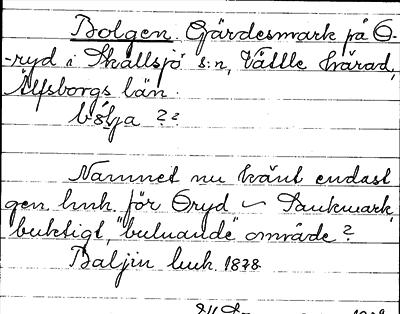 Bolgen. Gärdesmark på Ö-
-ryd i Skallsjö s:n, Vättle härad,
Älfsborgs län.
bölja ??
Namnet nu känt endast
gen. lmk. för Öryd ~ Sankmark,
buktigt, "buluande" område?
Baljin lmk. 1878